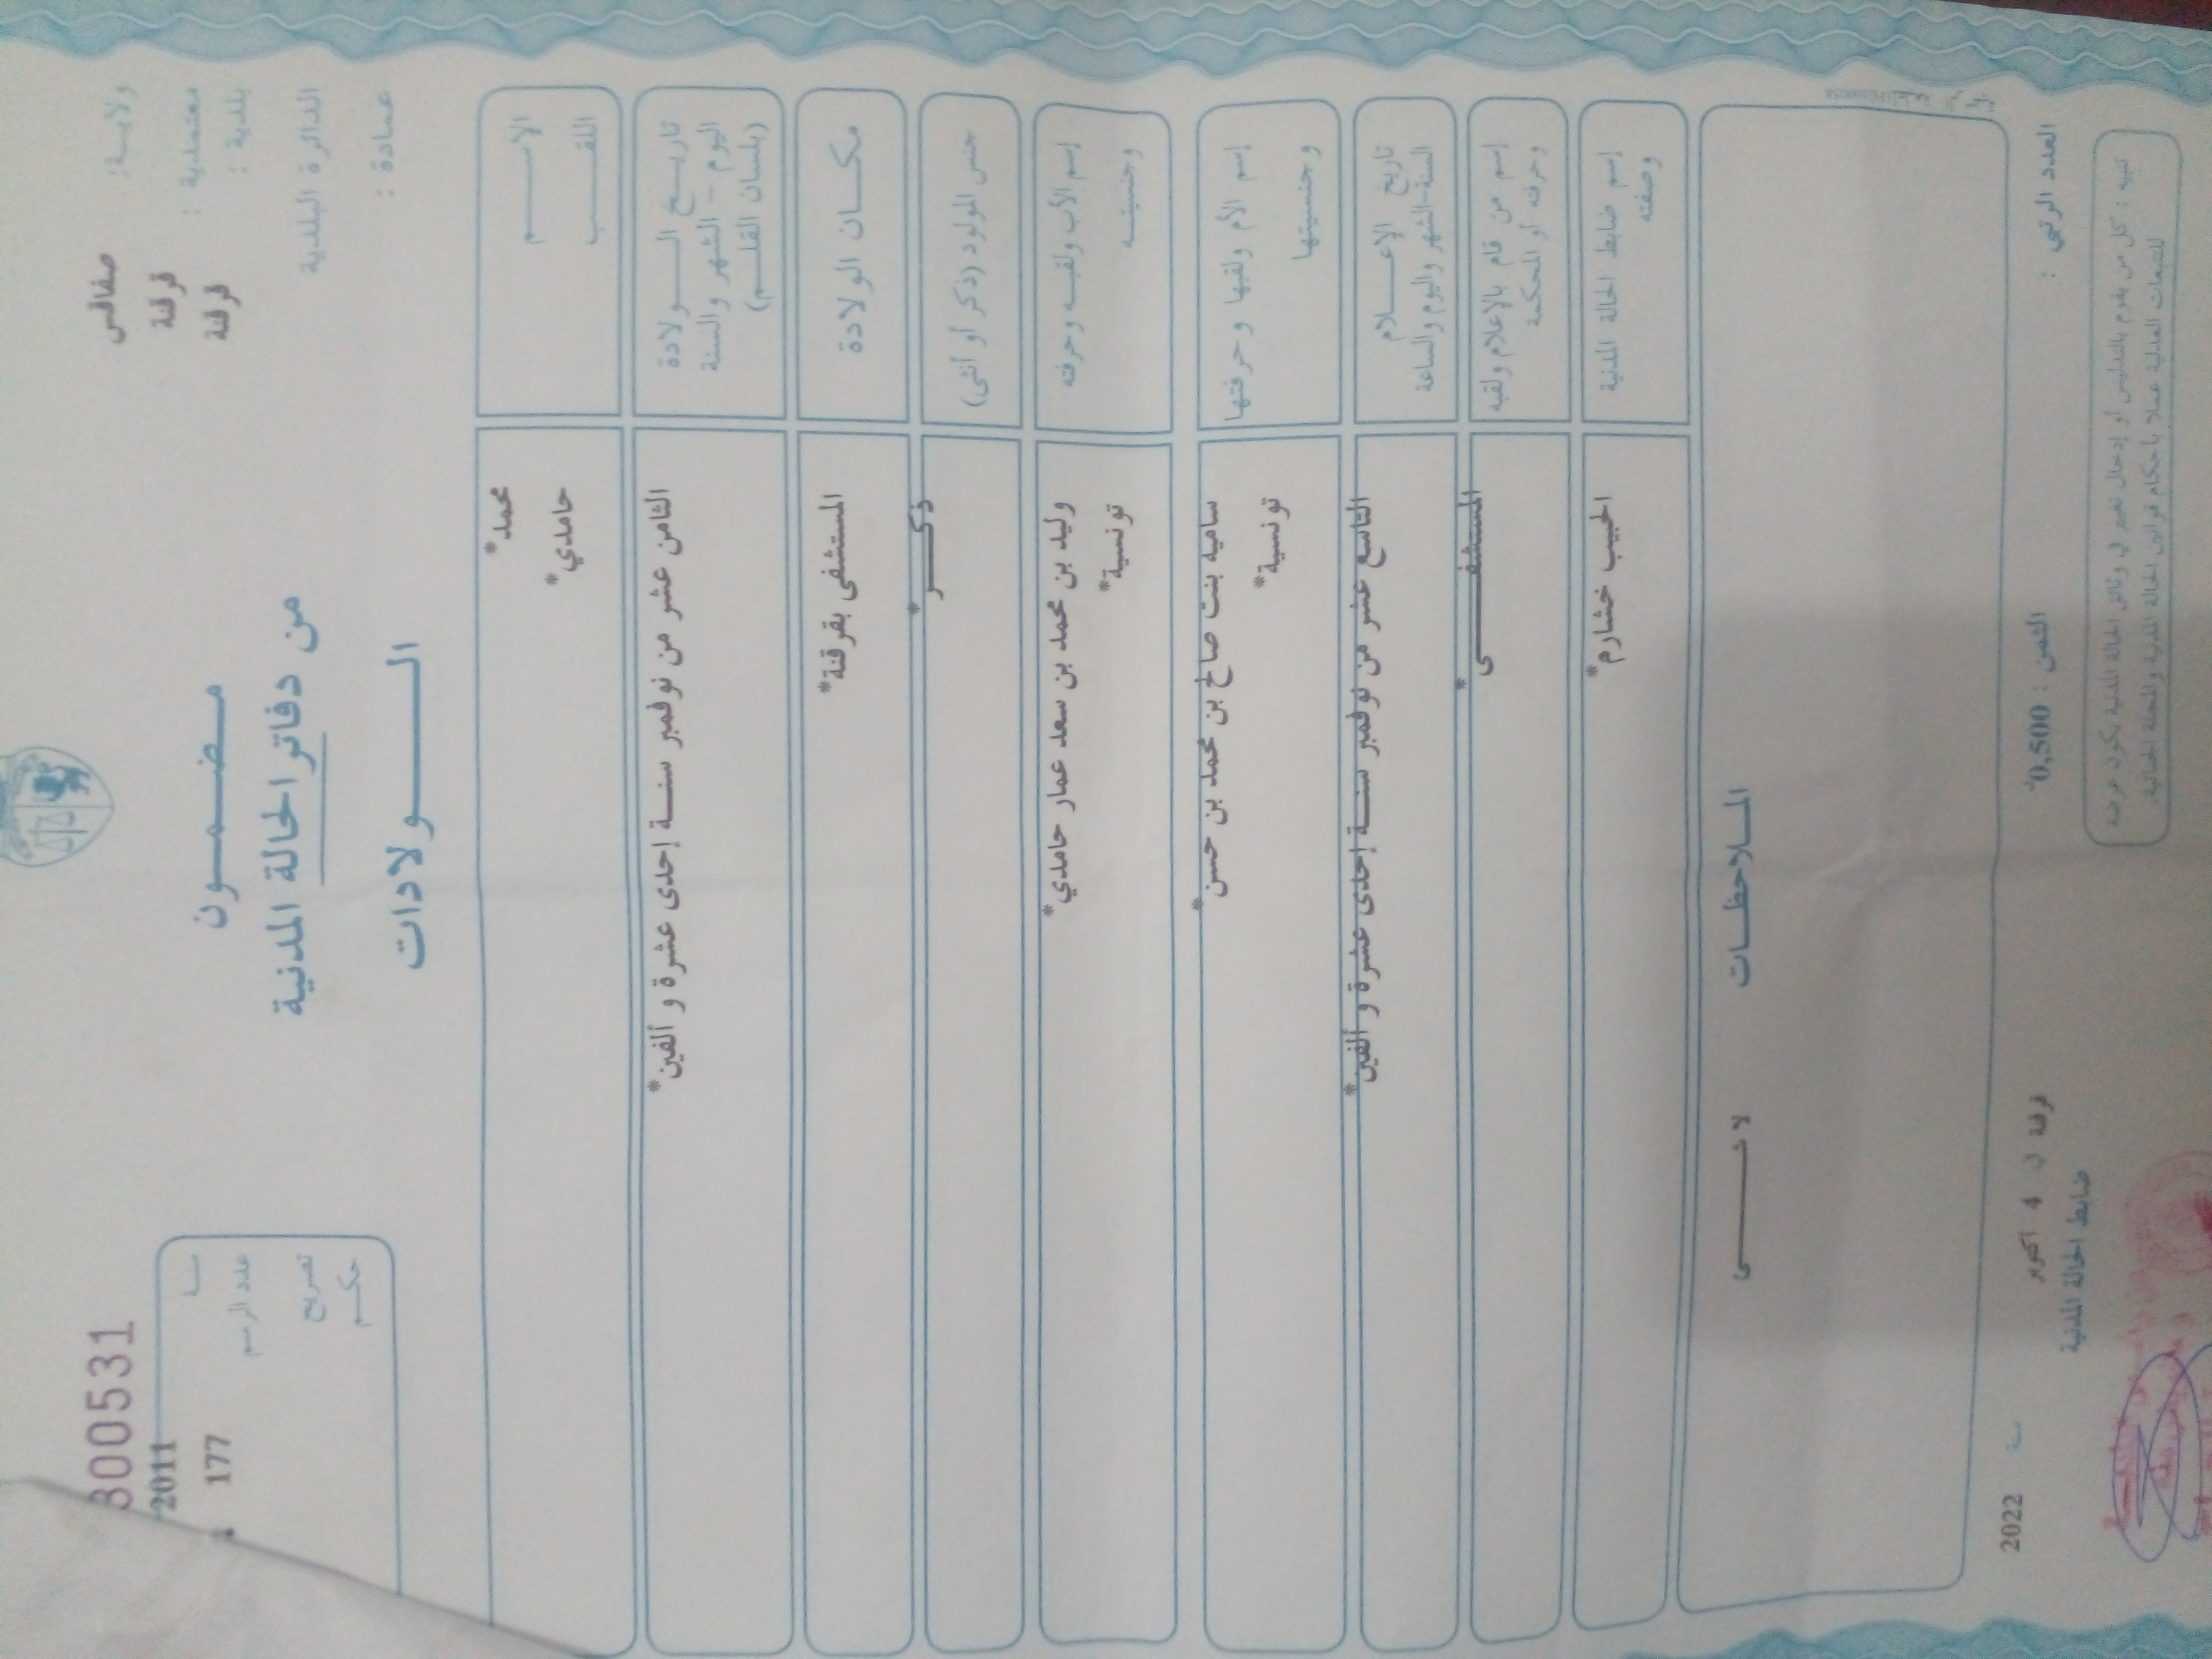 800531
ولاية: صفاقس
معتمدية : قرقنة
بلدية : قرقنة
الدائرة البلدية
عمادة :
سنة 2011
عدد الرسم 177
تصريح
حكم
مضمون
من دفاتر الحالة المدنية
الولادات
الاسم محمد*
اللقب حامدي*
تاريخ الولادة الثامن عشر من نوفمبر سنة إحدى عشرة و ألفين*
اليوم - الشهر والسنة
(بلسان القلم)
مكان الولادة المستشفى بقرقنة*
جنس المولود (ذكر أو أنثى) ذكر*
إسم الأب ولقبه وحرفته وليد بن محمد بن سعد عمار حامدي*
وجنسيته تونسية*
إسم الأم ولقبها وحرفتها ساميه بنت صالح بن محمد بن حسن*
وجنسيتها تونسية*
تاريخ الإعلام التاسع عشر من نوفمبر سنة إحدى عشرة و ألفين*
السنة-الشهر واليوم والساعة
إسم من قام بالإعلام ولقبه المستشفى*
وحرفته أو المحكمة
إسم ضابط الحالة المدنية الحبيب خشارم*
وصفته
الملاحظات
لا شىء
العدد الرتبي :
الثمن : 0,500د
قرقنة في 4 أكتوبر سنة 2022
ضابط الحالة المدنية
تنبيه : كل من يقوم بالتدليس أو إدخال تغيير في وثائق الحالة المدنية يكون عرضة
للتتبعات العدلية عملا بأحكام قوانين الحالة المدنية والمجلة الجنائية.